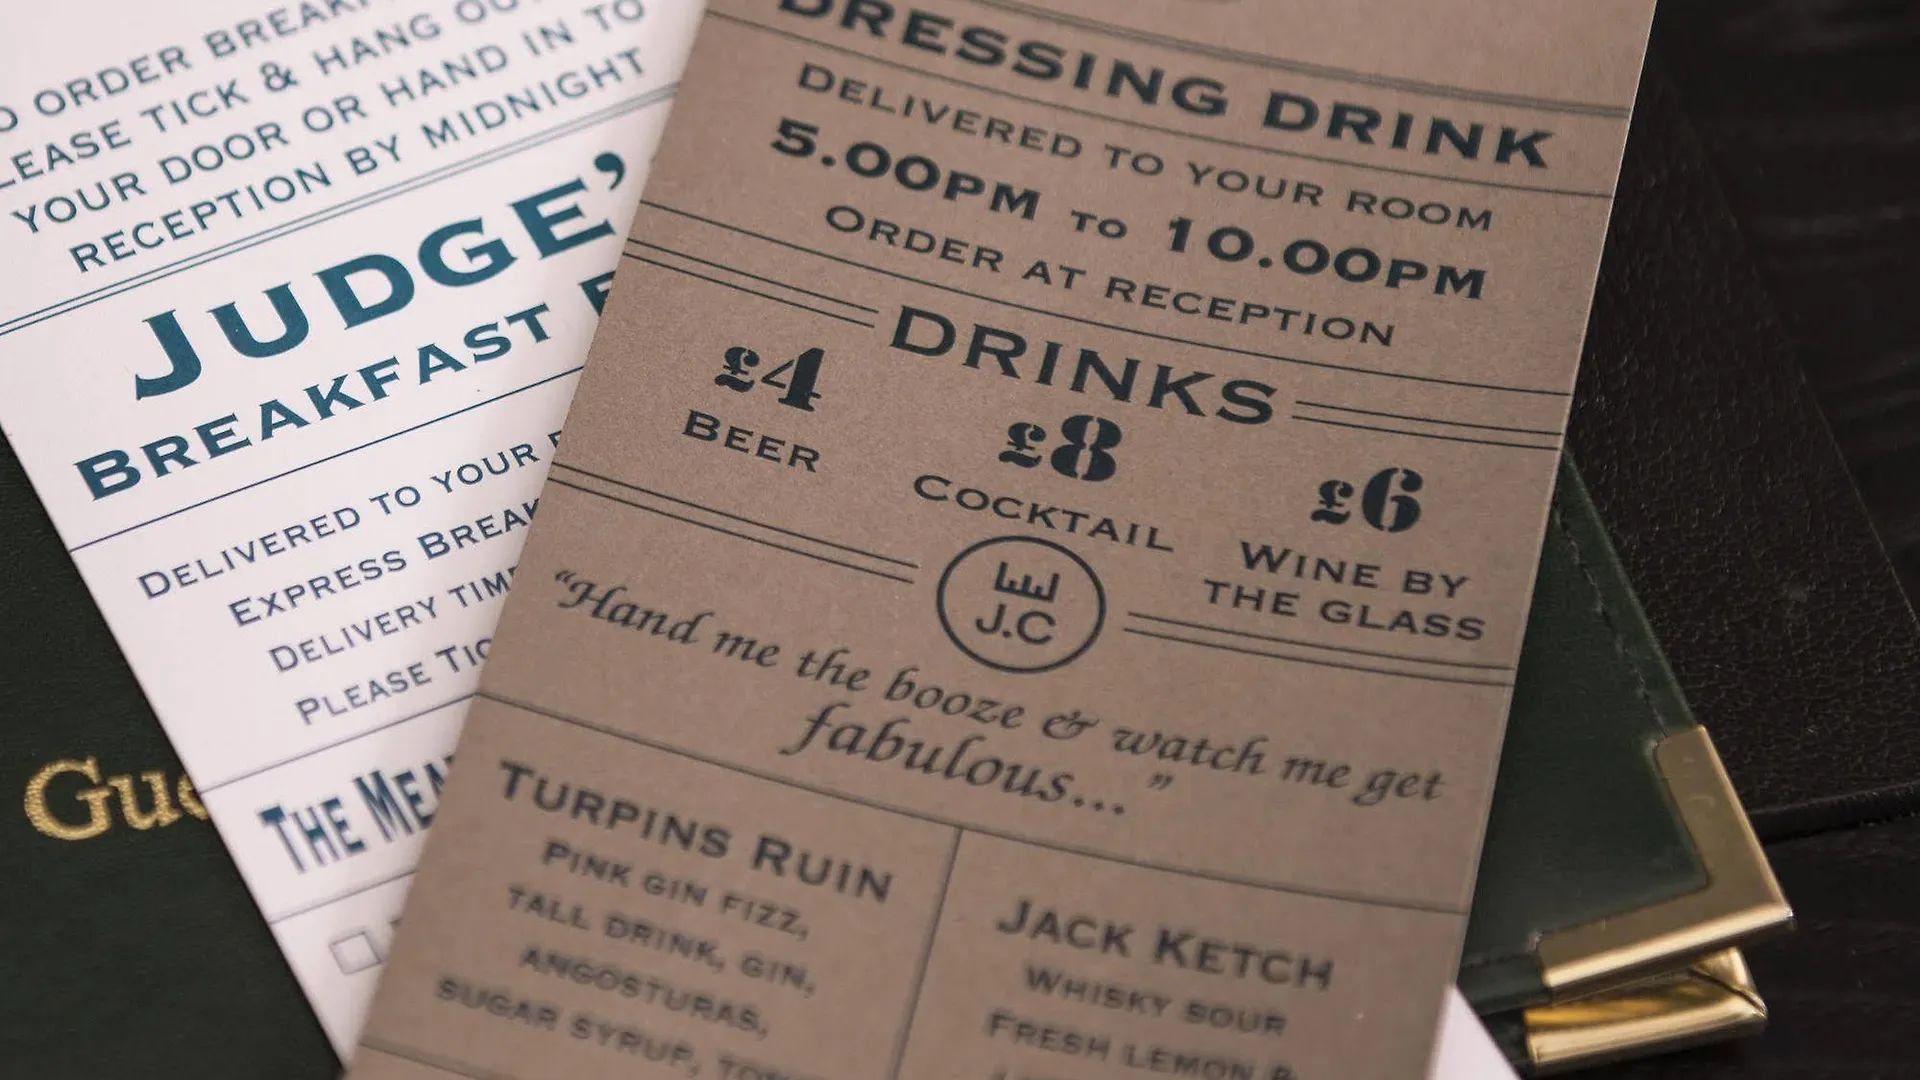 ORDER
PLEASE TICK & HANG
YOUR DOOR OR HAND IN TO
RECEPTION BY MIDNIGHT
JUDGE'
BREAKFAST
DELIVERED TO YOUR
EXPRESS
DELIVERY
PLEASE
THE
DRESSING DRINK
DELIVERED TO YOUR ROOM
5.00PM TO 10.00PM
ORDER AT RECEPTION
DRINKS
£4
BEER
£8
COCKTAIL
£6
WINE BY
THE GLASS
J.C
"Hand me the booze & watch me get
fabulous..."
TURPINS RUIN
PINK GIN FIZZ,
TALL DRINK, GIN,
ANGOSTURAS,
SUGAR SYRUP,
JACK KETCH
WHISKY SOUR
FRESH LEMON &